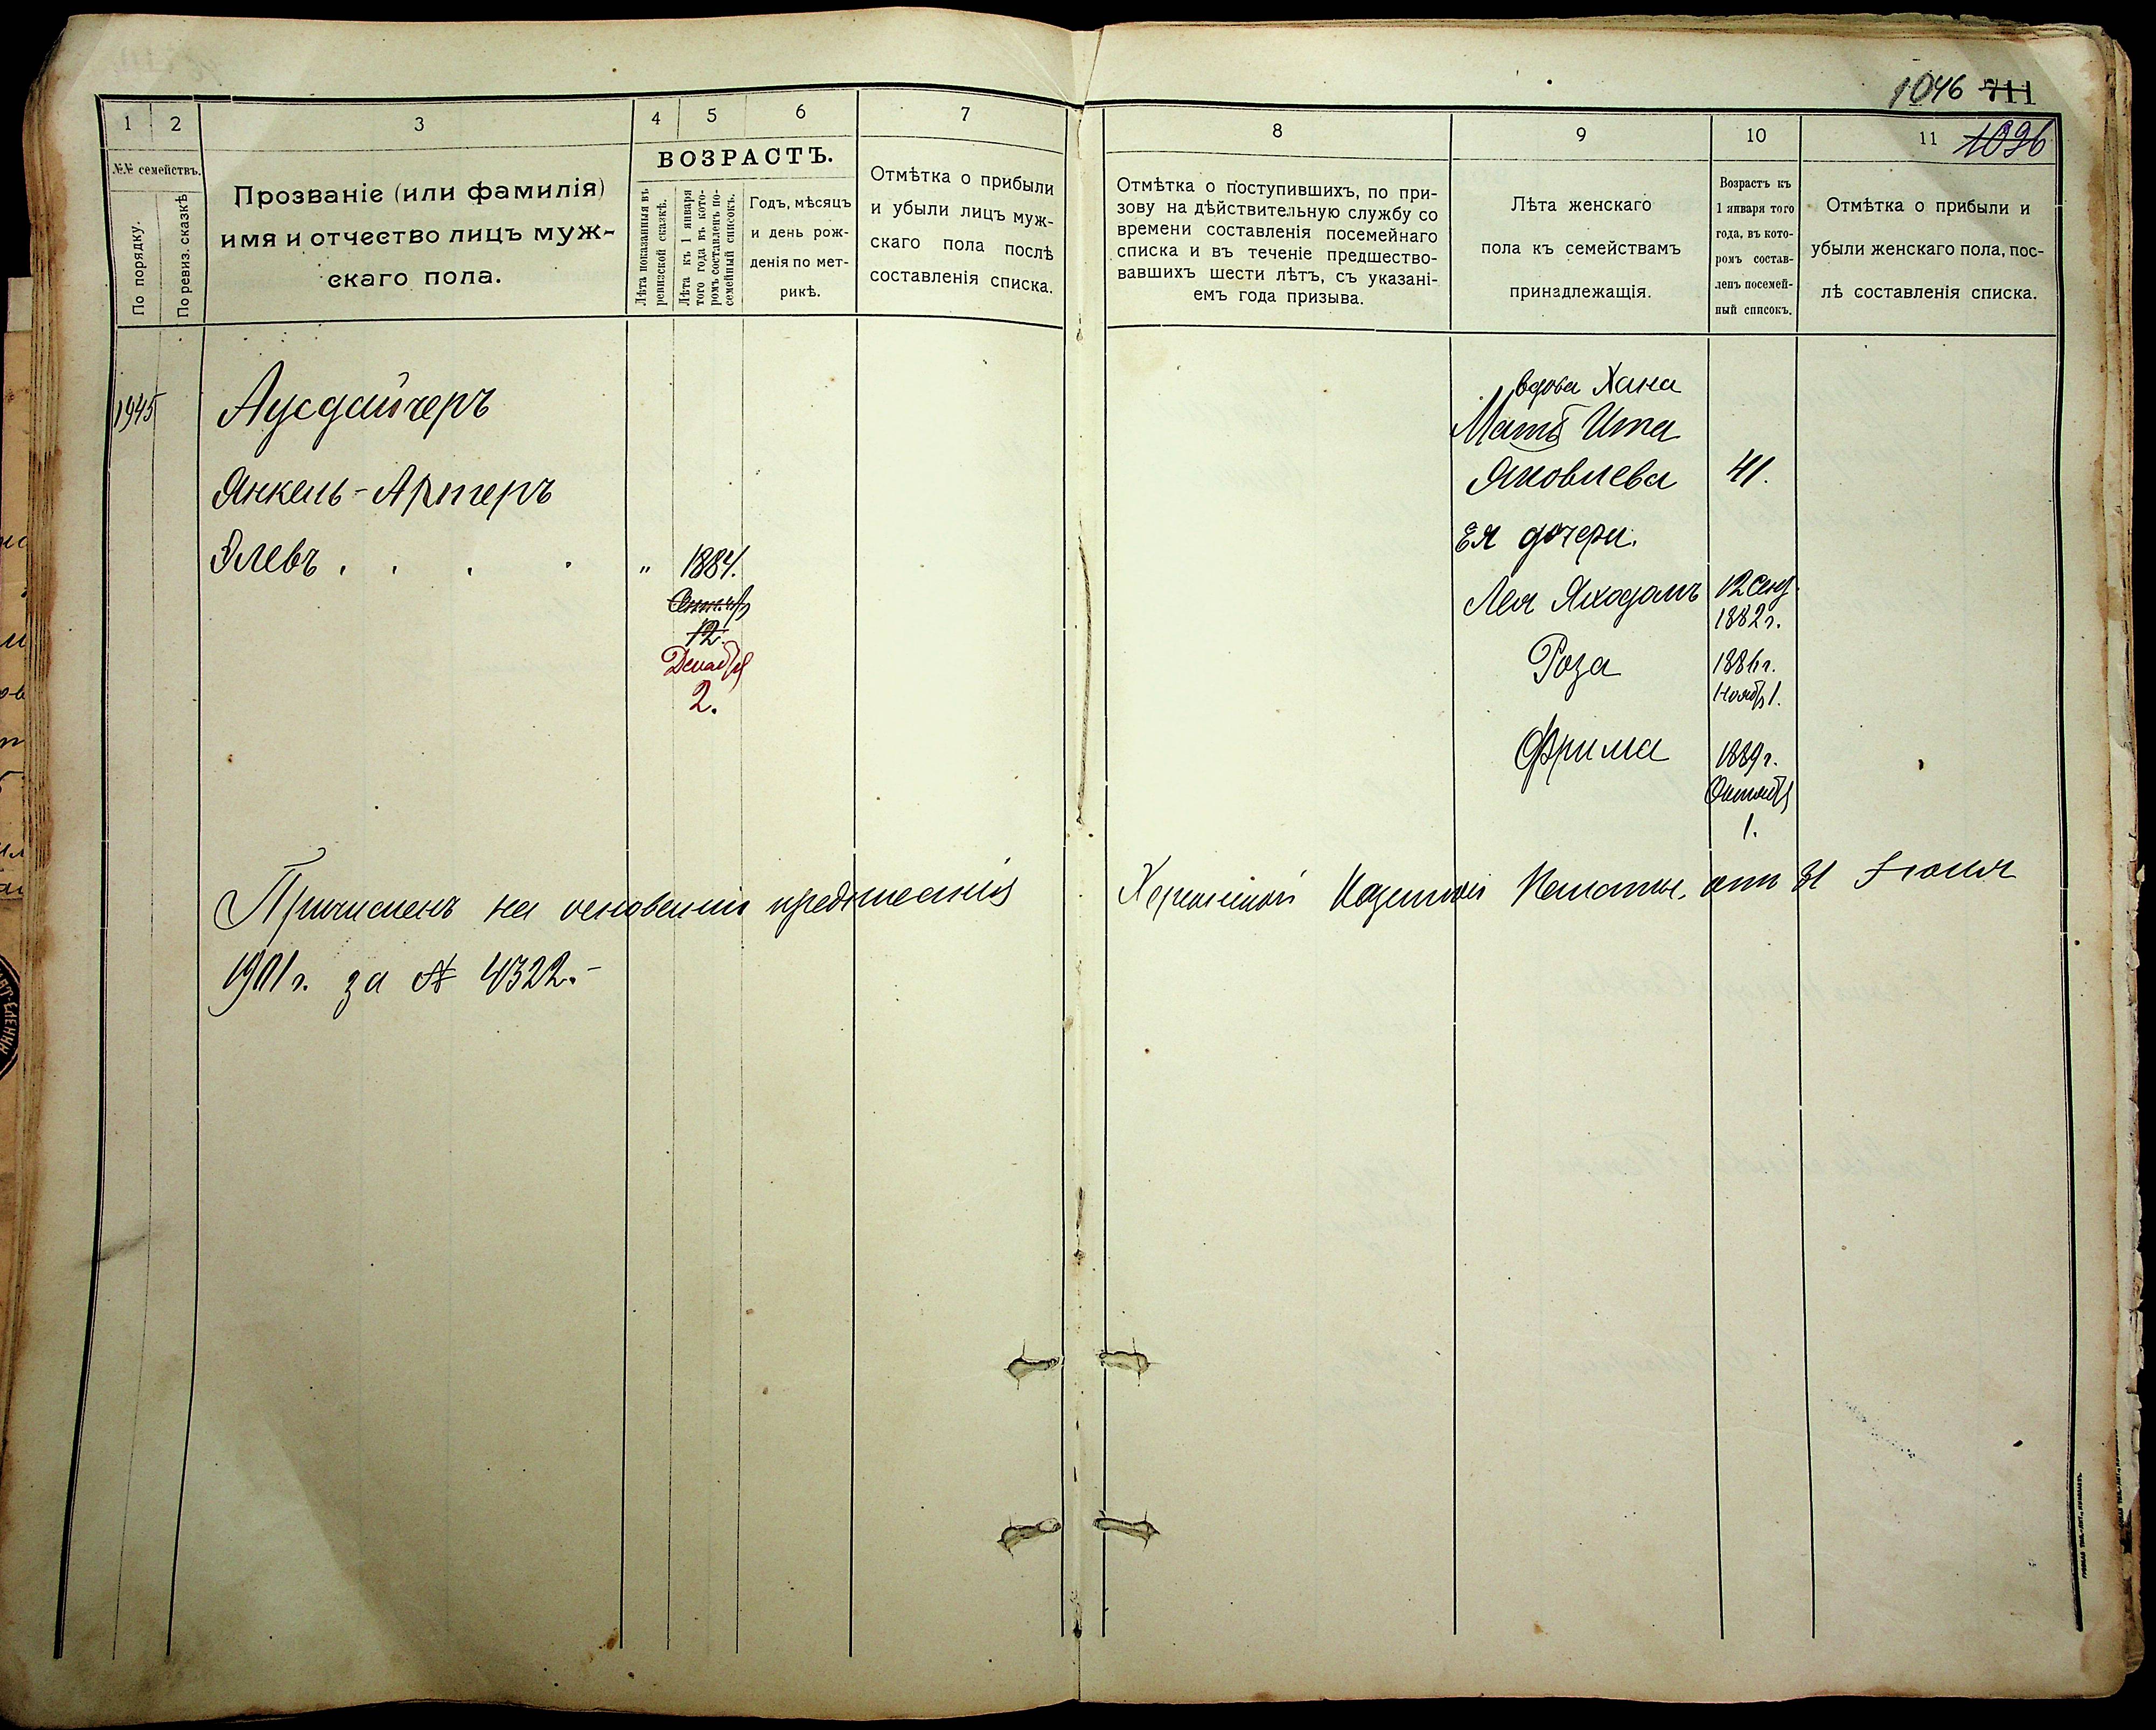 1046 711
1 2 3 4 5 6 7
№№ семействъ.
По порядку.
По ревиз. сказкѣ
Прозваніе (или фамилія)
имя и отчество лицъ муж-
скаго пола.
ВОЗРАСТЪ.
Лѣта показанныя въ
ревизской сказкѣ.
Лѣта къ 1 января
того года въ кото-
ромъ составленъ по-
семейный списокъ.
Годъ, мѣсяцъ
и день рож-
денія по мет-
рикѣ.
Отмѣтка о прибыли
и убыли лицъ муж-
скаго пола послѣ
составленія списка.
8 9 10 11 1096
Отмѣтка о поступившихъ, по при-
зову на дѣйствительную службу со
времени составленія посемейнаго
списка и въ теченіе предшество-
вавшихъ шести лѣтъ, съ указані-
емъ года призыва.
Лѣта женскаго
пола къ семействамъ
принадлежащія.
Возрастъ къ
1 января того
года, въ кото-
ромъ состав-
ленъ посемей-
ный списокъ.
Отмѣтка о прибыли и
убыли женскаго пола, пос-
лѣ составленія списка.
1945
Аусдайчеръ
Янкель-Артеръ
Элевъ . . . .
" 1884.
12.
Декабря
2.
вдова Хана
Мать Ита
Яковлева 41.
Ея дочери.
Лея
1882 г.
Роза 1886 г.
Ноябр 1.
Фрима 1889 г.
Октября
1.
Причисленъ на основаніи предписанія Херсонской Казенной Палаты, отъ 31 Іюля
1901 г. за № 4322.-